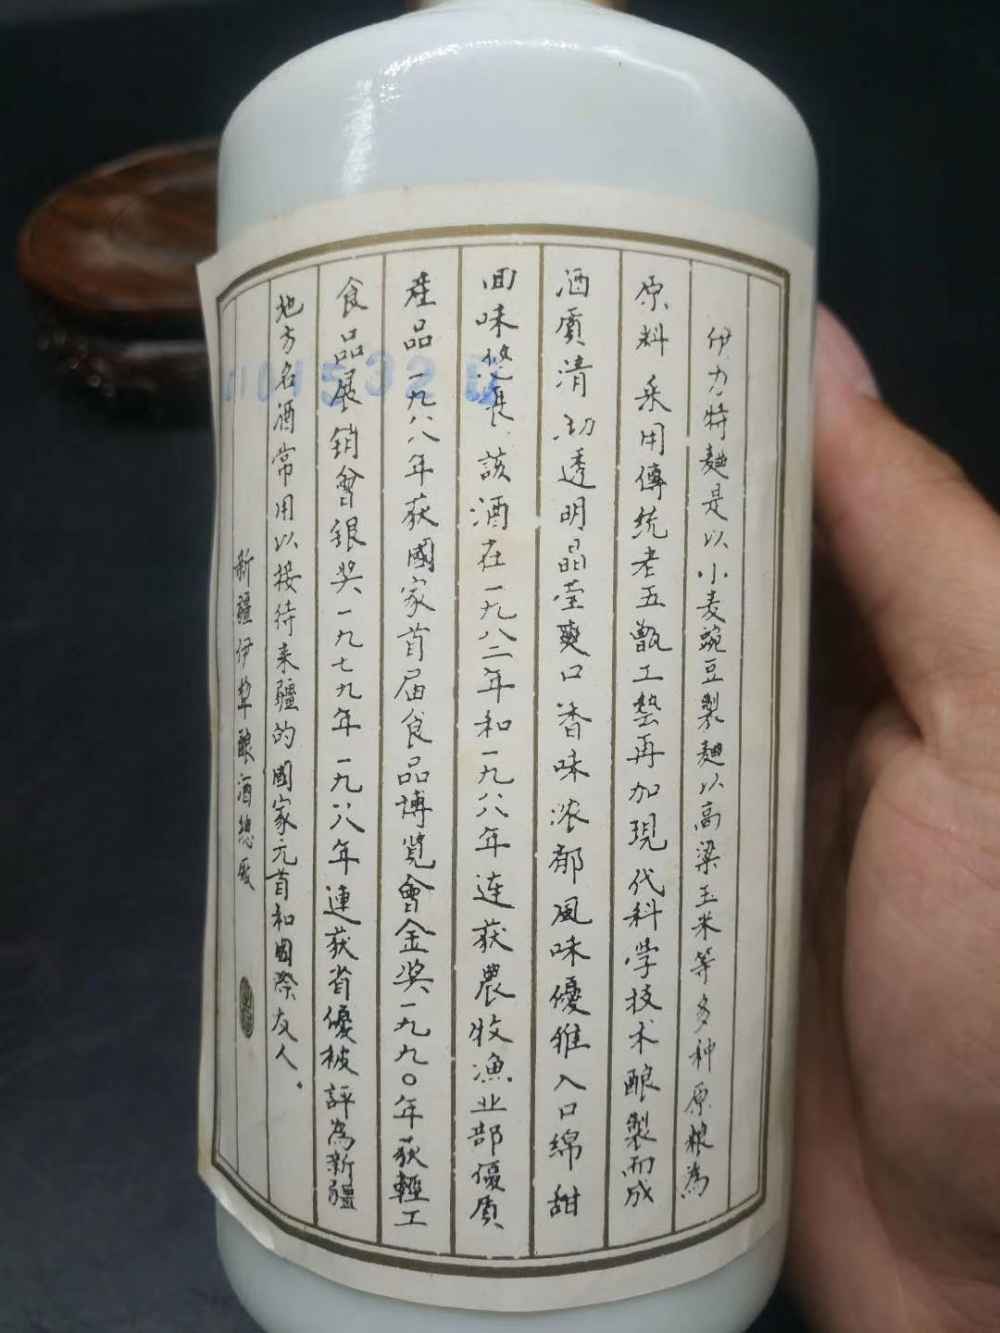 伊力特麯是以小麦豌豆製麯以高粱玉米等多种原粮為
原料采用傳統老五甑工藝再加現代科学技术酿製而成
酒质清冽透明晶莹爽口香味浓郁風味優雅入口綿甜
回味悠長、該酒在一九八二年和一九八八年连获農牧漁业部優质
産品一九八八年获國家首届食品博览會金奖一九九〇年获輕工
食品展销會银奖一九七九年一九八八年連获省優被評為新疆
地方名酒常用以接待来疆的國家元首和國際友人.
新疆伊犁酿酒總厰